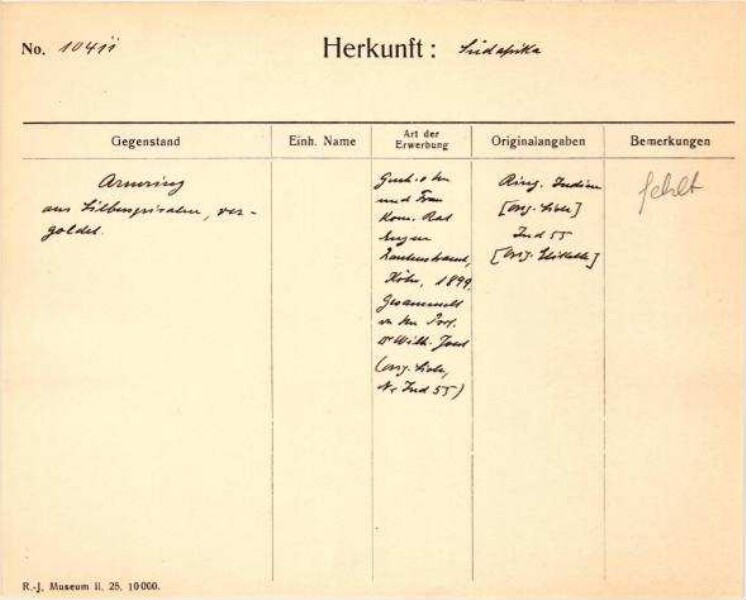 No. 10411
Herkunft: Südafrika
Gegenstand
Einh. Name
Art der
Erwerbung
Originalangaben
Bemerkungen
Armring
aus Silberspiralen, ver-
goldet.
Gesch. v. Hn
und Frau
Kom. Rat
Eugen
Rautenstrauch,
Köln, 1899.
Gesammelt
von Hn Prof.
Dr Wilh. Joest
(orig. Liste,
Nr Ind 55)
Ring. Indien
[orig. Liste]
Ind 55
[orig. Etikette]
fehlt
R.-J. Museum II. 25. 10000.